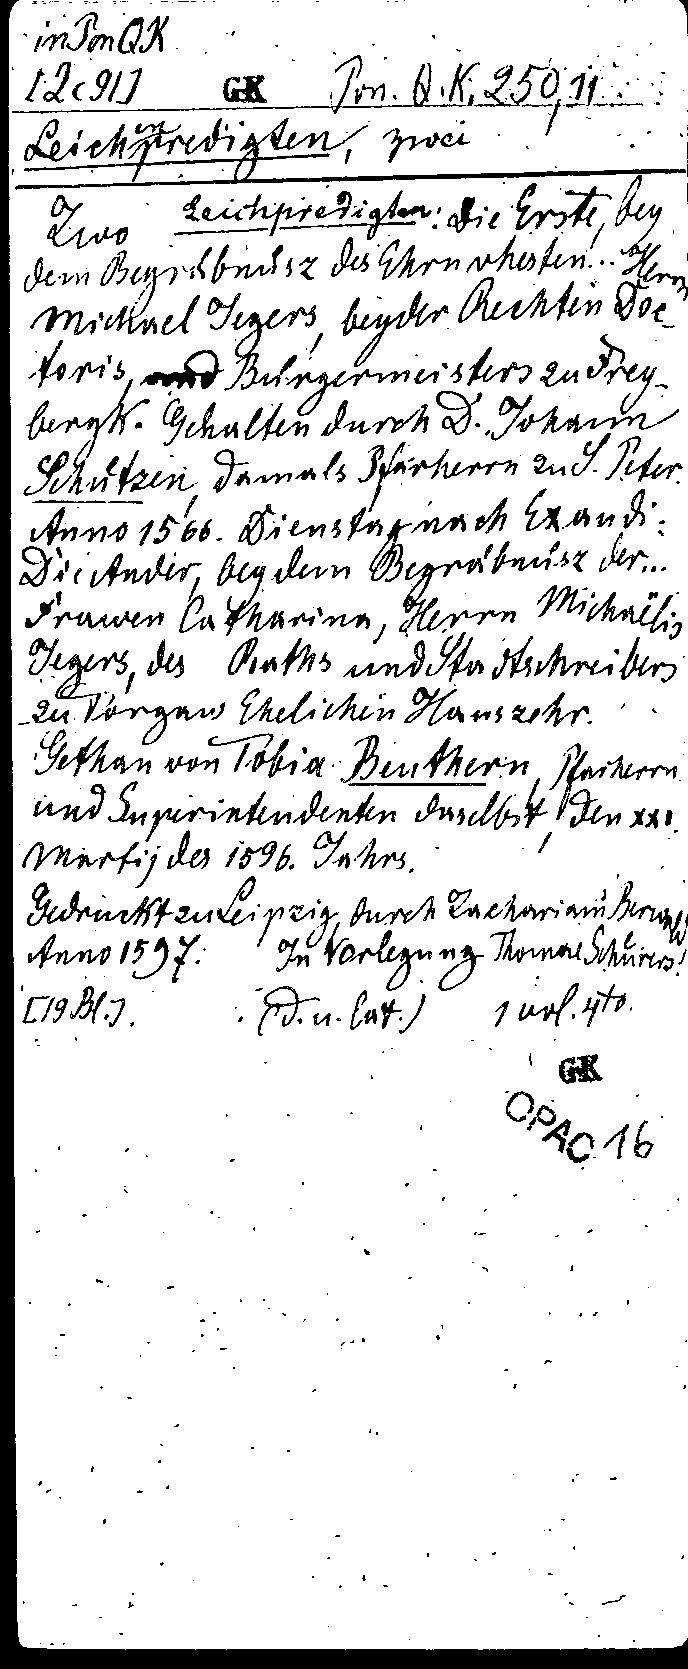 in Pon QK
[2c91] GK Pon. Q.K. 250,11
Leichenpredigten, zwei
Zwo Leichpredigten: Die Erste, bey
dem Begräbnüsz des Ehrnvhesten... Herrn
Michael Jegers, beyder Rechten Doc-
toris, und Bürgermeisters zu Frey-
bergk. Gehalten durch D. Johann
Schützen, damals Pfarherrn zu S. Peter.
Anno 1566. Dienstag nach Exaudi:
Die Ander, bey dem Begräbnüsz der...
Frawen Catharina, Herrn Michaëlis
Jegers, des Raths und Stadtschreibers
zu Torgaw Ehelichen Hauszehr.
Gethan von Tobia Beuthern, Pfarherrn
und Superintendenten daselbst, den xxi.
Martij des 1596. Jahrs.
Gedruckt zu Leipzig, durch Zachariam Berwald
Anno 1597. In Vorlegung Thomae Schürers!
[19 Bl.]. (D. u. Lat.) 1 vol. 4to.
GK
OPAC 16